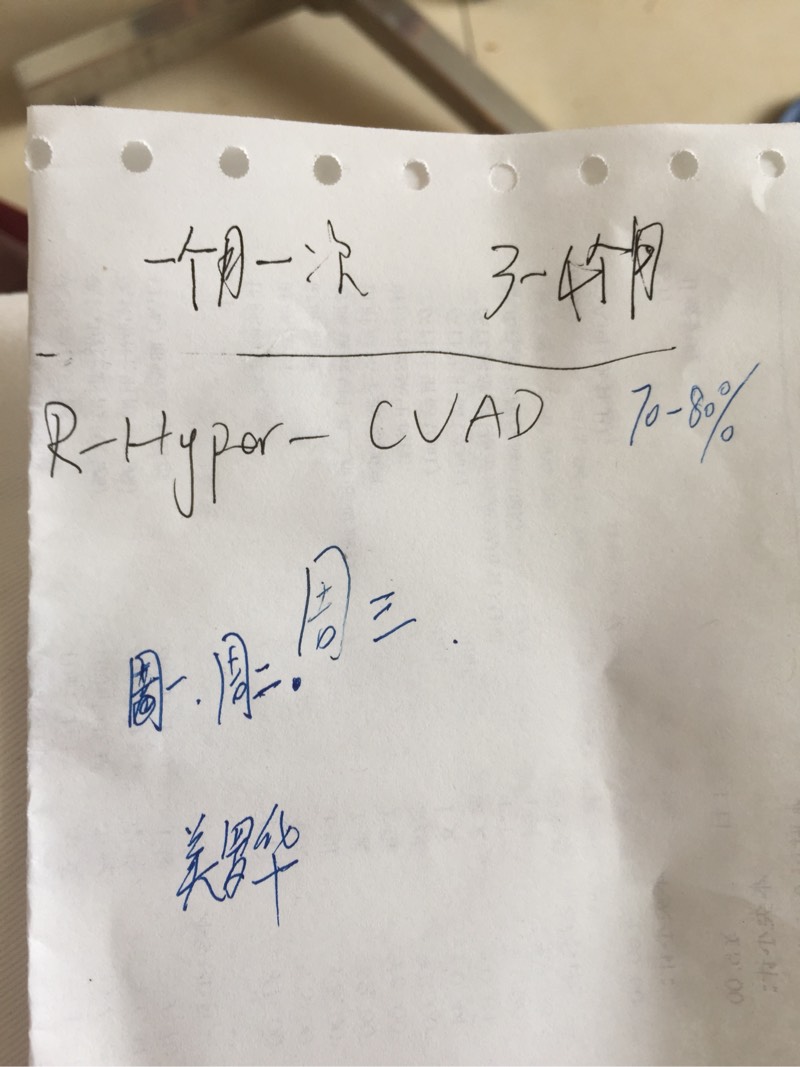 一个月一次 3-4个月
R-Hyper-CVAD 70-80%
周一.周二.周三.
美罗华